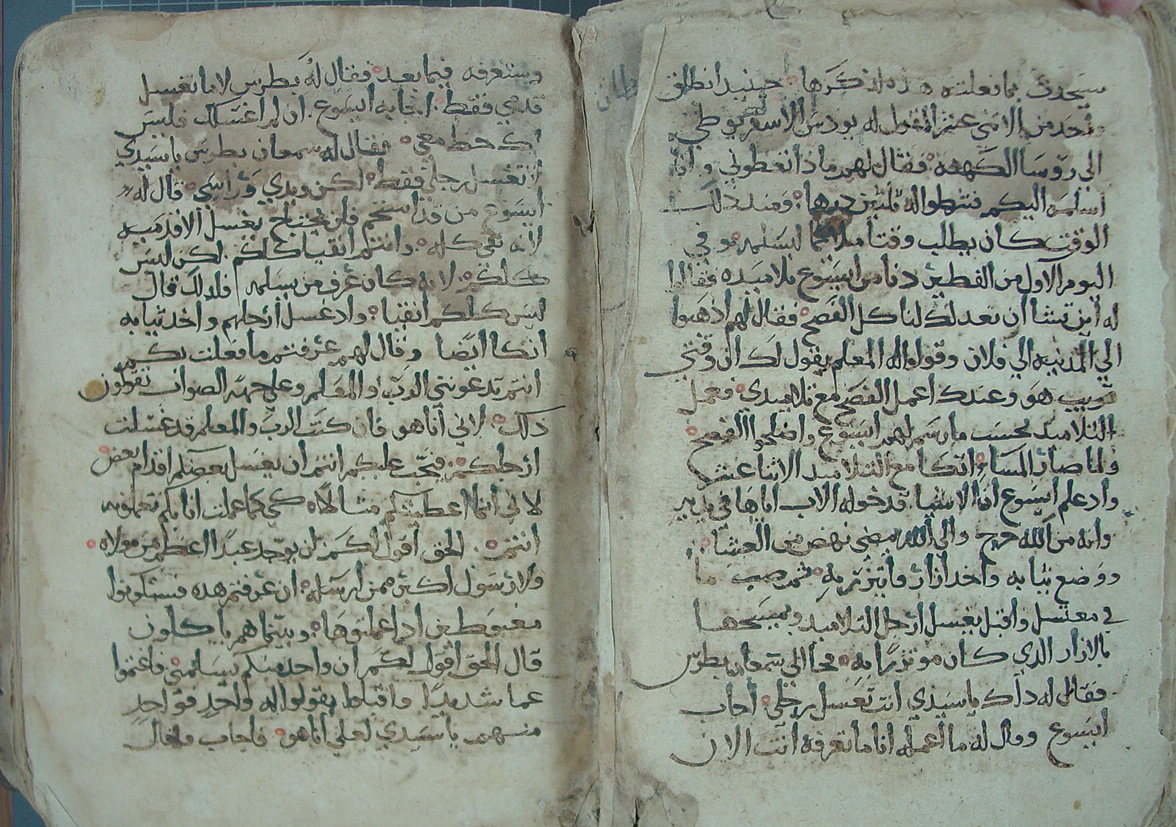 سيحدث بما فعلته هذه لذكرها حينيد انطلق
واحد من الاثني عشر المقول له يودس الاسخريوطي
الى روسا الكهنه فقال لهم ماذا تعطوني وانا
اسلمه اليكم فشرطوا له ثلثين درهما ومند دلك
الوقت كان يطلب وقتا ليسلمه وفي
اليوم الاول من الفطير دنا من ايسوع تلاميده فقالوا
له اين تشا ان نعد لك لناكل الفصح فقال لهم ادهبوا
الي المدينه الي فلان وقولوا له المعلم يقول لك ان وقتي
قريب هو وعندك اعمل الفصح مع تلاميدي فعمل
التلاميد بحسب ما رسم لهم ايسوع واصلحوا الفصح
ولما صار المسا اتكا مع التلاميد الاثنا عشر
واد علم ايسوع ان الاشيا قد خوله الاب اياها في يديه
وانه من الله خرج والى الله يمضي نهض من العشا
ووضع ثيابه واخد ازار فاتزر به ثم صب ما
في مغتسل واقبل يغسل ارجل التلاميد ويمسحها
بالازار الدي كان موتزرا به فجا الي سمعان بطرس
فقال له داك يا سيدي انت تغسل رجلي اجاب
ايسوع وقال له ما اعمله انا ما تعرفه انت الان
وستعرفه فيما بعد فقال له بطرس لا ما تغسل
قدمي فقط اجابه ايسوع ان لم اغسلك فليس
لك حظ معي فقال له سمعان بطرس يا سيدي
لا تغسل رجلي فقط لكن ويدي وراسي قال له
ايسوع من قد استحم فلن يحتاج يغسل الا قدميه
لانه نقي كله وانتم انقيا كلكم لكن ليس
كلكم لانه كان عرف من يسلمه فلدلك قال
ليس كلكم انقيا واد غسل ارجلهم واخد ثيابه
اتكا ايضا وقال لهم عرفتم ما فعلت بكم
انتم تدعونني الرب والمعلم وعلى جهة الصواب تقولون
دلك لاني انا هو فان كنت الرب والمعلم قد غسلت
ارجلكم فيجب عليكم انتم ان يغسل بعضكم اقدام بعض
لاني انما اعطيتكم مثالا كي كما عملت انا بكم تعملونه
انتم الحق اقول لكم لن يوجد عبدا اعظم من مولاه
ولا رسول اكبر ممن ارسله ان عرفتم هده فستكونوا
مغبوطين ادا عملتوها وبينما هم ياكلون
قال الحق اقول لكم ان واحد منكم يسلمني فاغتموا
غما شديدا واقبلوا يقولوا له واحد فواحد
منهم يا سيدي لعلي انا هو فاجاب وقال